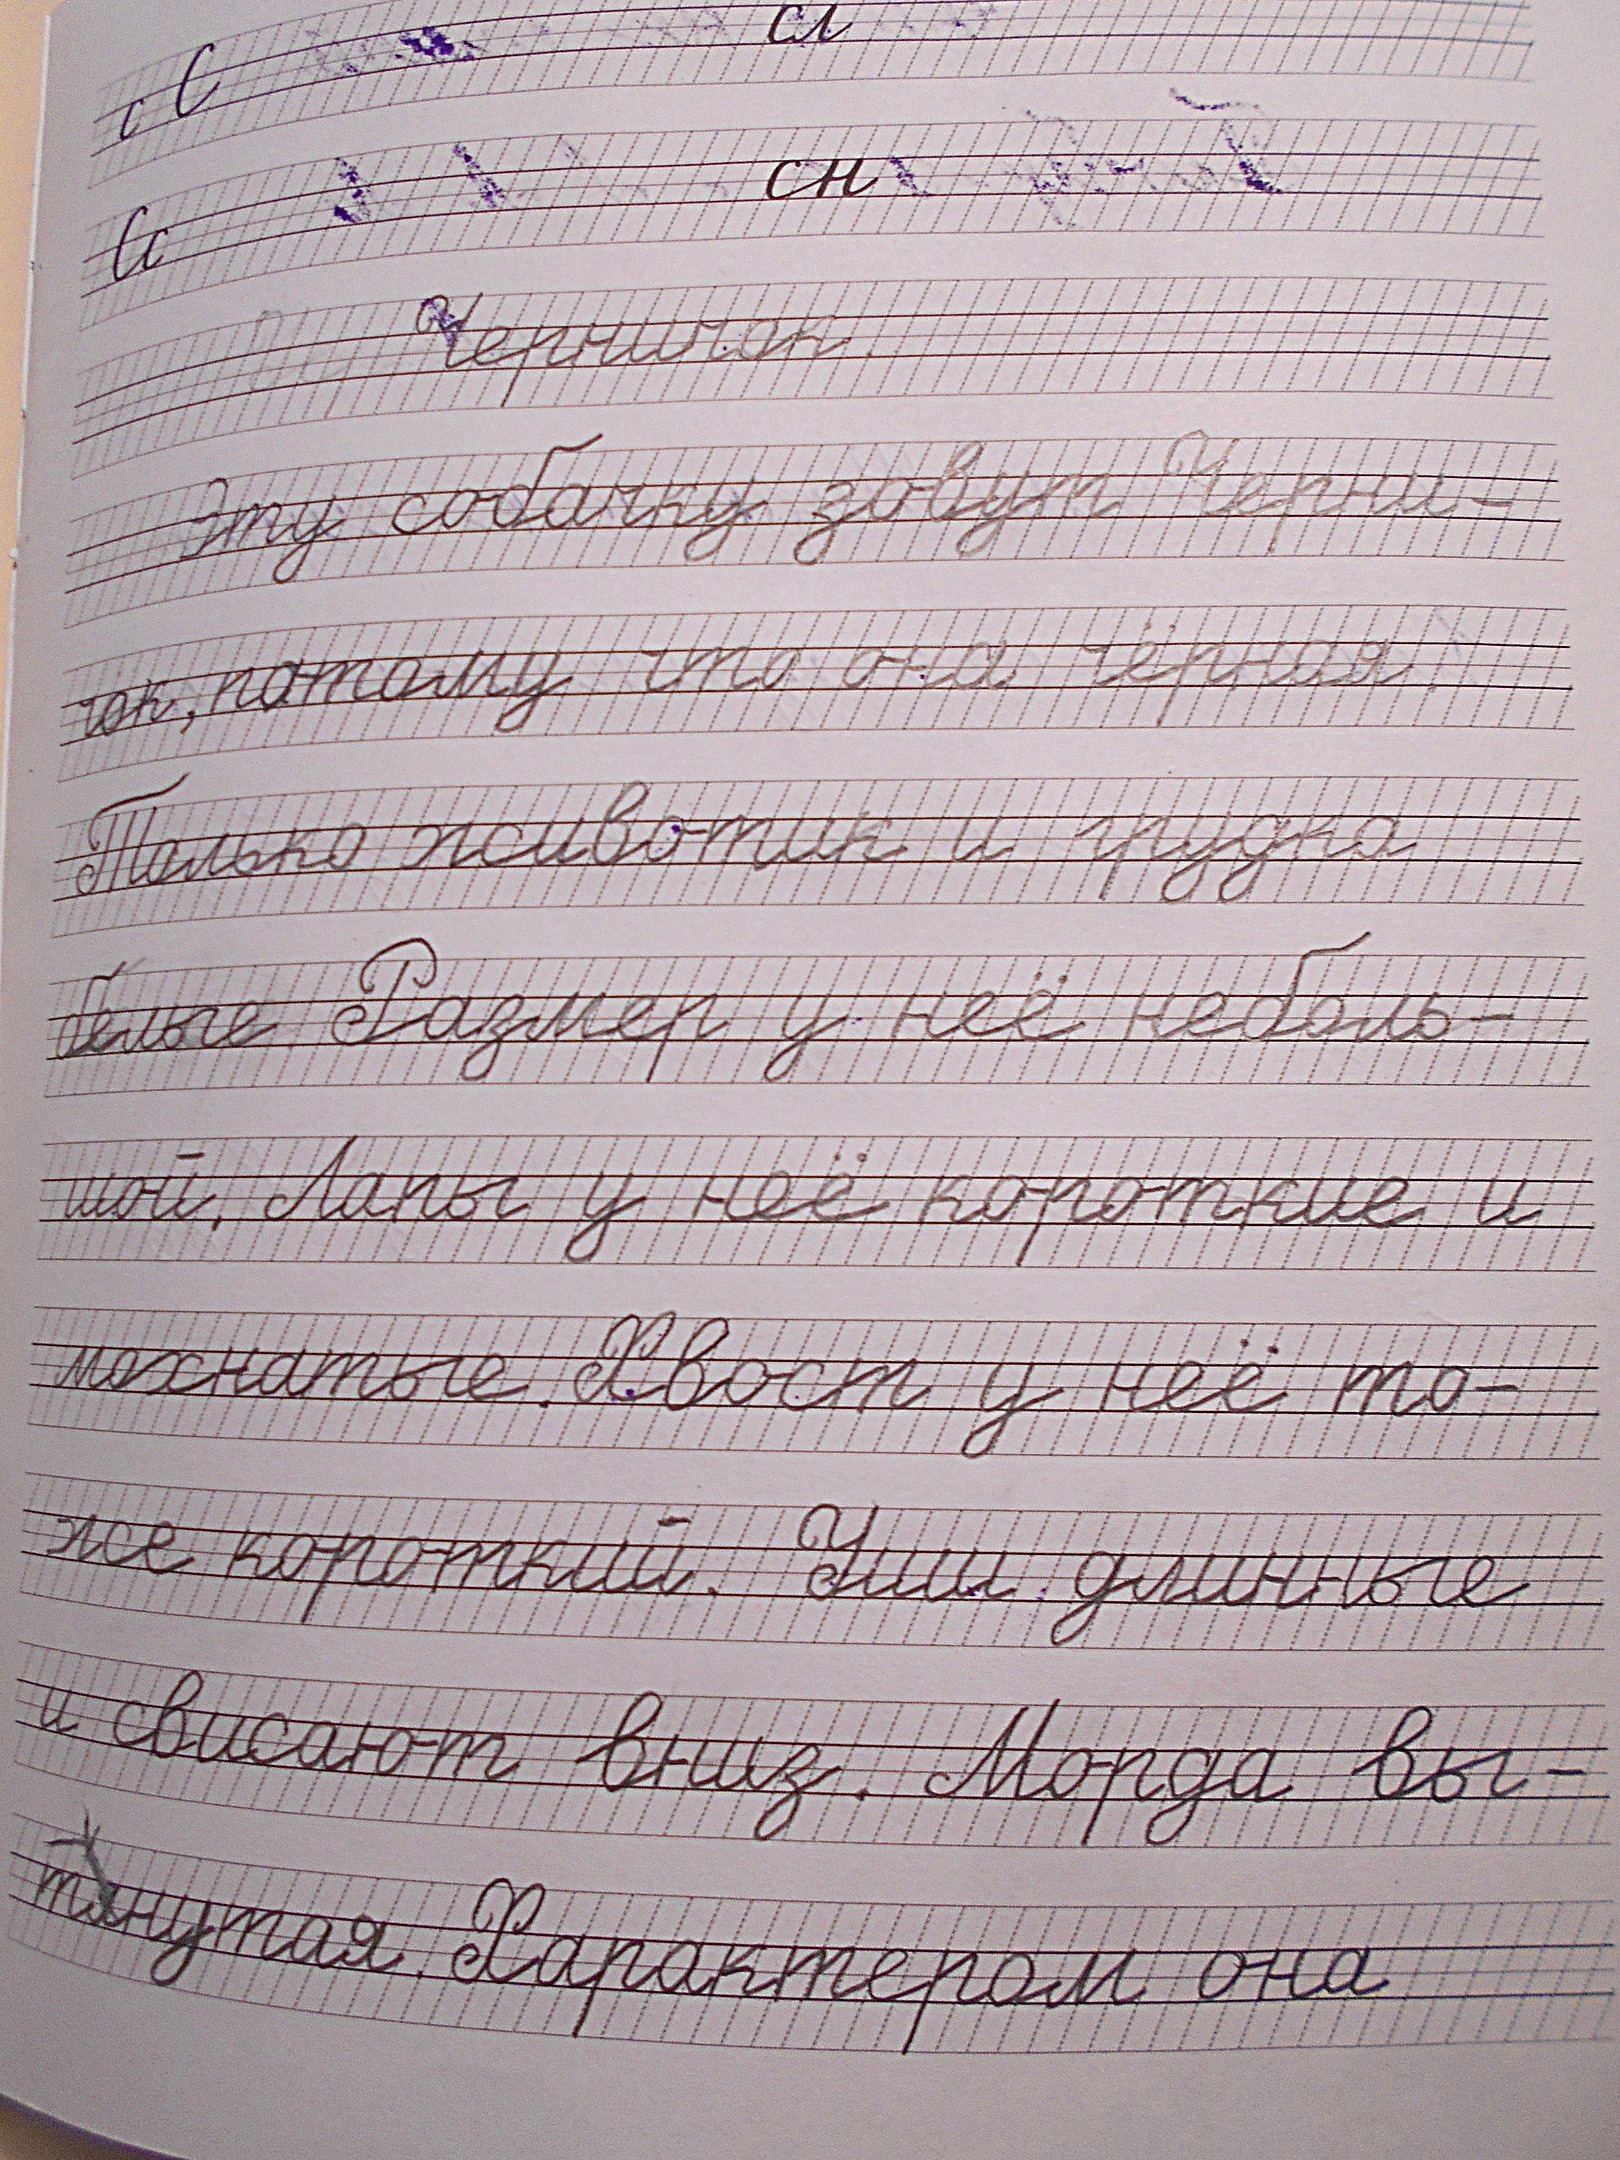 с С сл
Сс сн
Черничок.
Эту собачку зовут Черни-
чок, потому что она чёрная.
Только животик и грудка
белые Размер у неё неболь-
шой. Лапы у неё короткие и
мохнатые. Хвост у неё то-
же короткий. Уши длинные
и свисают вниз. Морда вы-
тянутая. Характером она